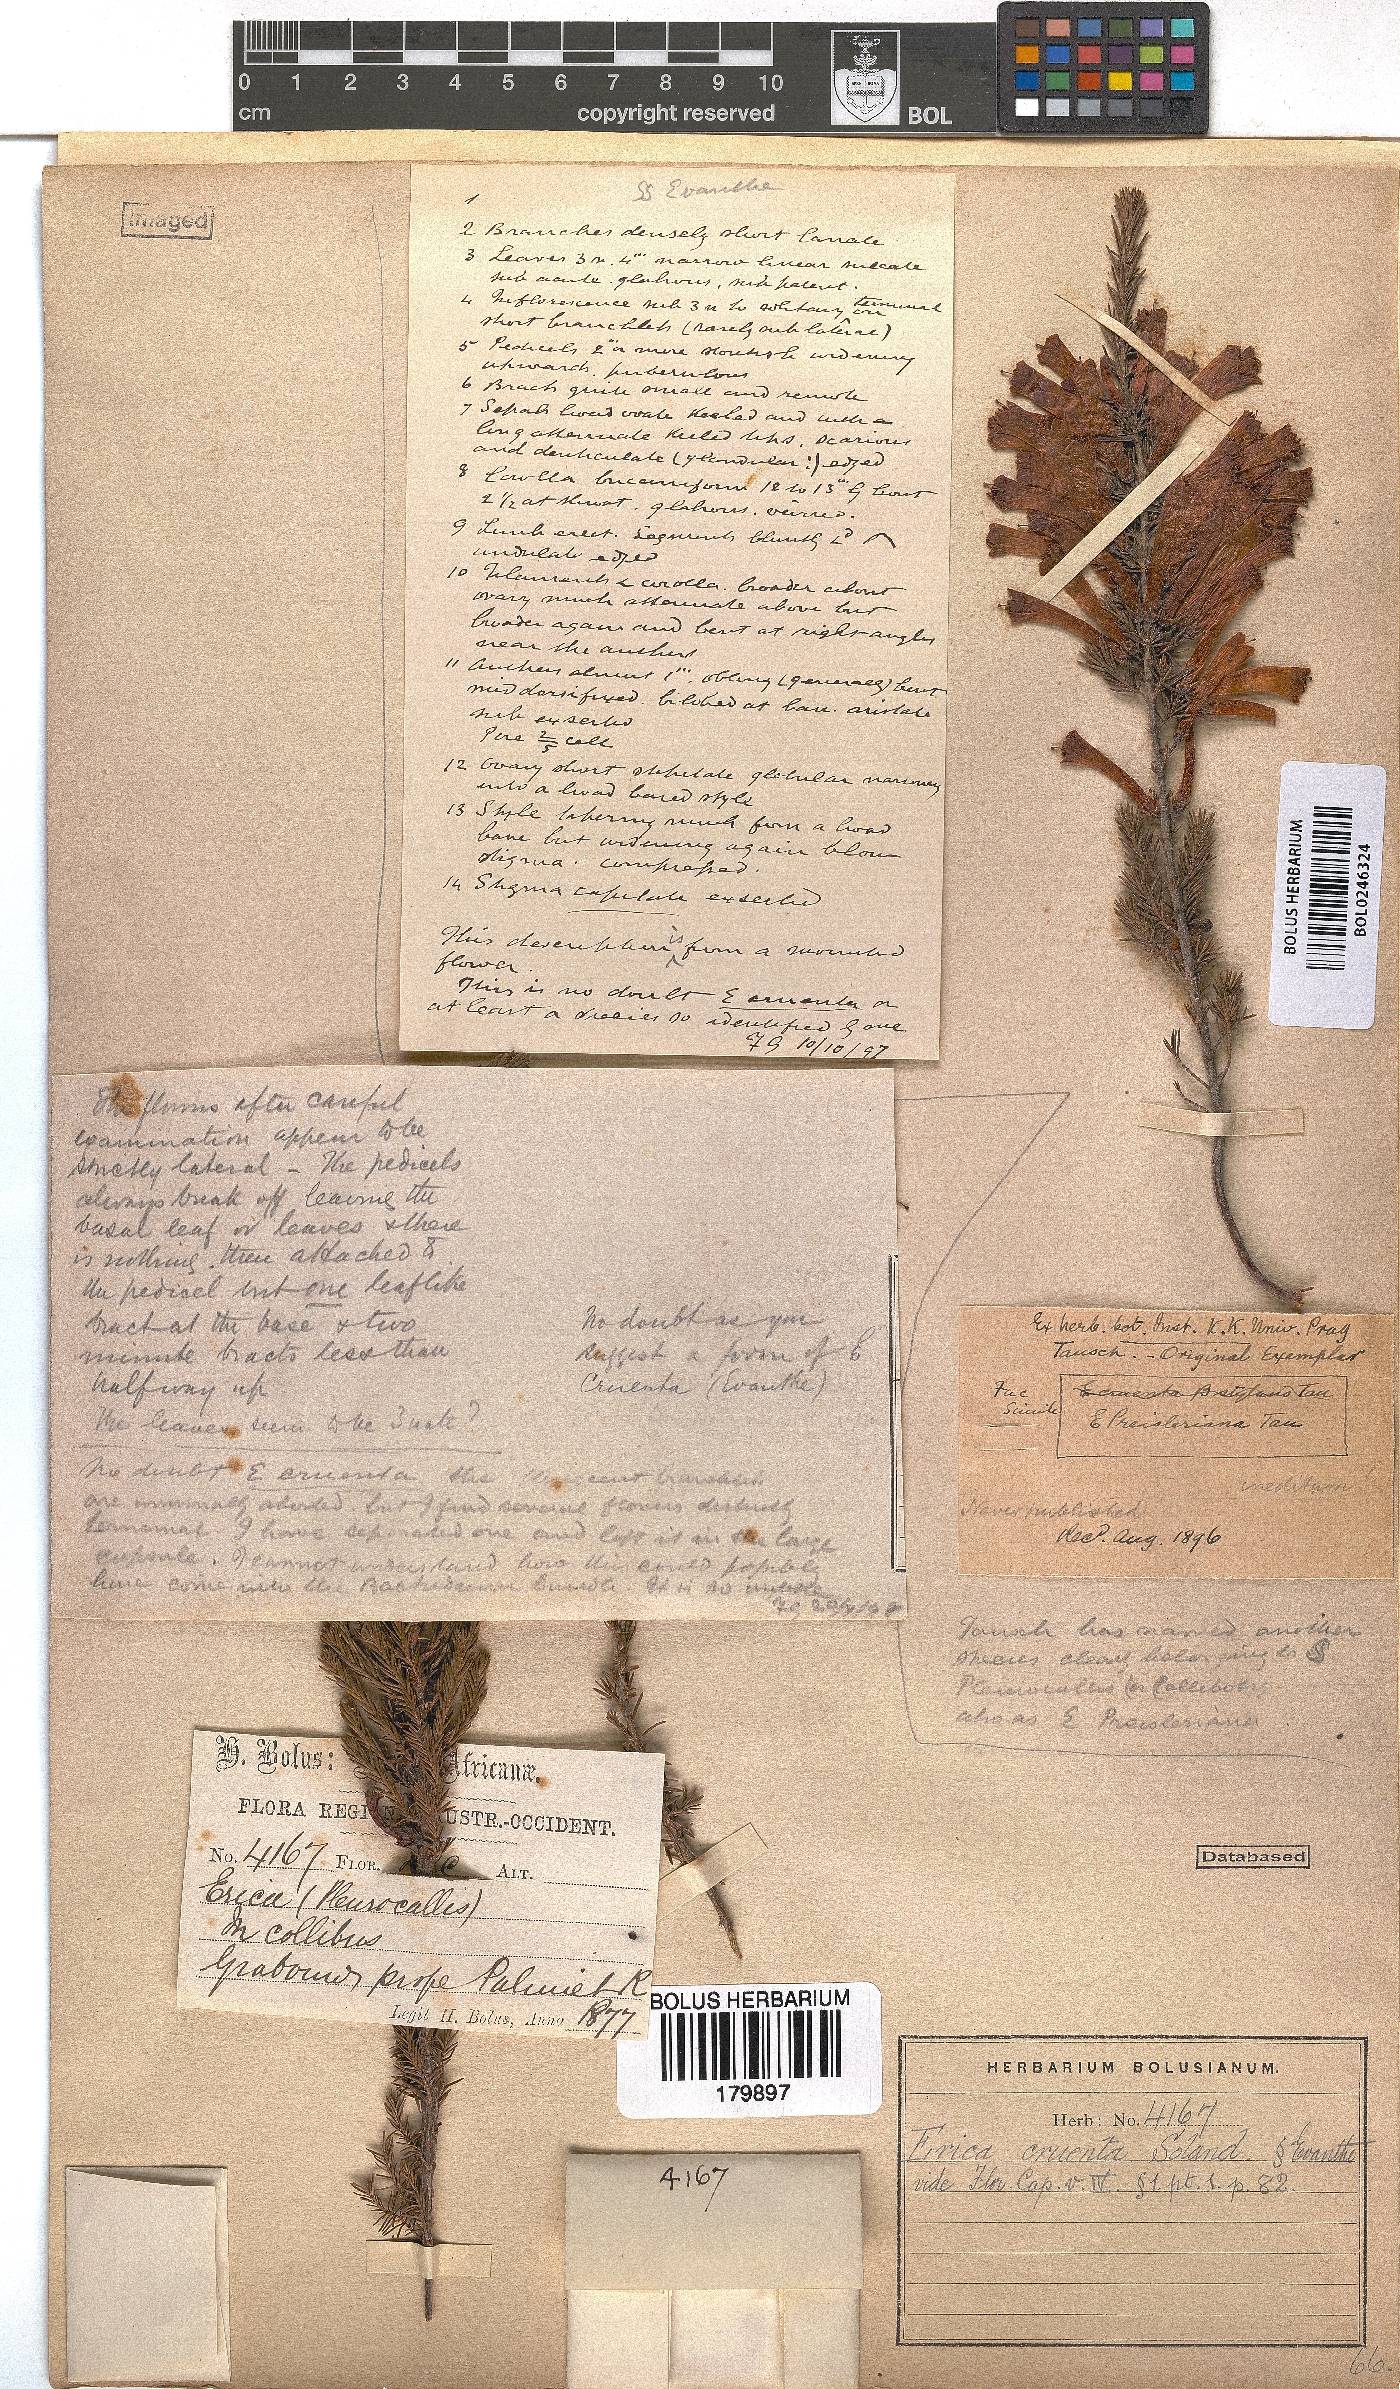 0 1 2 3 4 5 6 7 8 9 10
cm
copyright reserved
BOL
Imaged
§§ Evanthe
1
2 Branches densely short lanate
3 Leaves 3 n. 4''' narrow linear sulcate
sub acute glabrous, sub patent.
4 Inflorescence sub 3 n to solitary terminal on
short branchlets (rarely sub lateral)
5 Pedicels 2''' or more stoutish widening
upwards puberulous
6 Bracts quite small and remote
7 Sepals broad ovate keeled and with a
long attenuate keeled tips, scarious
and denticulate (glandular!) edged
8 Corolla bucciniform 12 to 13''' by bout
2 1/2 at throat. glabrous. veined.
9 Limb erect. Segments bluntly
undulate edged
10 Filaments corolla. broader about
ovary much attenuate above but
broader again and bent at right angles
near the anthers
11 Anthers almost 1''' oblong (generally) bent
mid dorsifixed bilobed at base. aristate
sub exserted
Pore 2/5 cell
12 Ovary short stipitate globular narrowing
into a broad based style
13 Style tapering much from a broad
base but widening again below
stigma. compressed.
14 Stigma capitate exserted
This description is from a mounted
flower.
This is no doubt E cruenta or
at least a species so identified by one
FG 10/10/97
The flowers after careful
examination appear to be
strictly lateral – The pedicels
always break off leaving the
basal leaf or leaves & there
is nothing then attached to
the pedicel but one leaflike
bract at the base & two
minute bracts less than
halfway up
The leaves seem to be 3 nate?
No doubt as you
suggest a form of E
Cruenta (Evanthe)
No doubt E cruenta the branches
are unusually aborted but I find several flowers distinctly
terminal. I have separated one and left it in the large
capsule. I cannot understand how this could possibly
have come into the bundle. It is so unlike
FG
BOLUS HERBARIUM
BOL0246324
Ex herb. bot. Inst. K.K. Univ. Prag
Tausch. – Original Exemplar
Fac
Simile
E cruenta β stylosis Tau
E Preisleriana Tau
ineditum
Never published
Recd. Aug. 1896
Tausch has named another
species clearly belonging to §
Pleurocallis (or Callibotrys)
also as E Preisleriana
H. Bolus: Africanæ.
FLORA REGI USTR.-OCCIDENT.
No. 4167 FLOR. ALT.
Erica (Pleurocallis)
In collibus
Grabouw prope Palmiet R
Legit H. Bolus, Anno 1877
Databased
BOLUS HERBARIUM
179897
4167
HERBARIUM BOLUSIANUM.
Herb: No. 4167
Erica cruenta Soland. § Evanthe
vide Flor Cap. v. IV. §1 pt. 1. p. 82.
66.